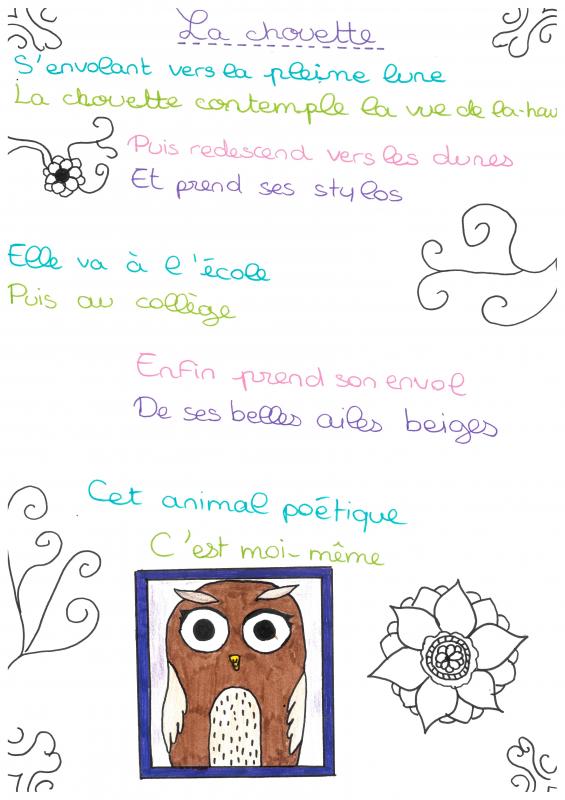 La chouette
S'envolant vers la pleine lune
La chouette contemple la vue de la-hau
Puis redescend vers les dunes
Et prend ses stylos
Elle va à l'école
Puis au collège
Enfin prend son envol
De ses belles ailes beiges
Cet animal poétique
C'est moi-même